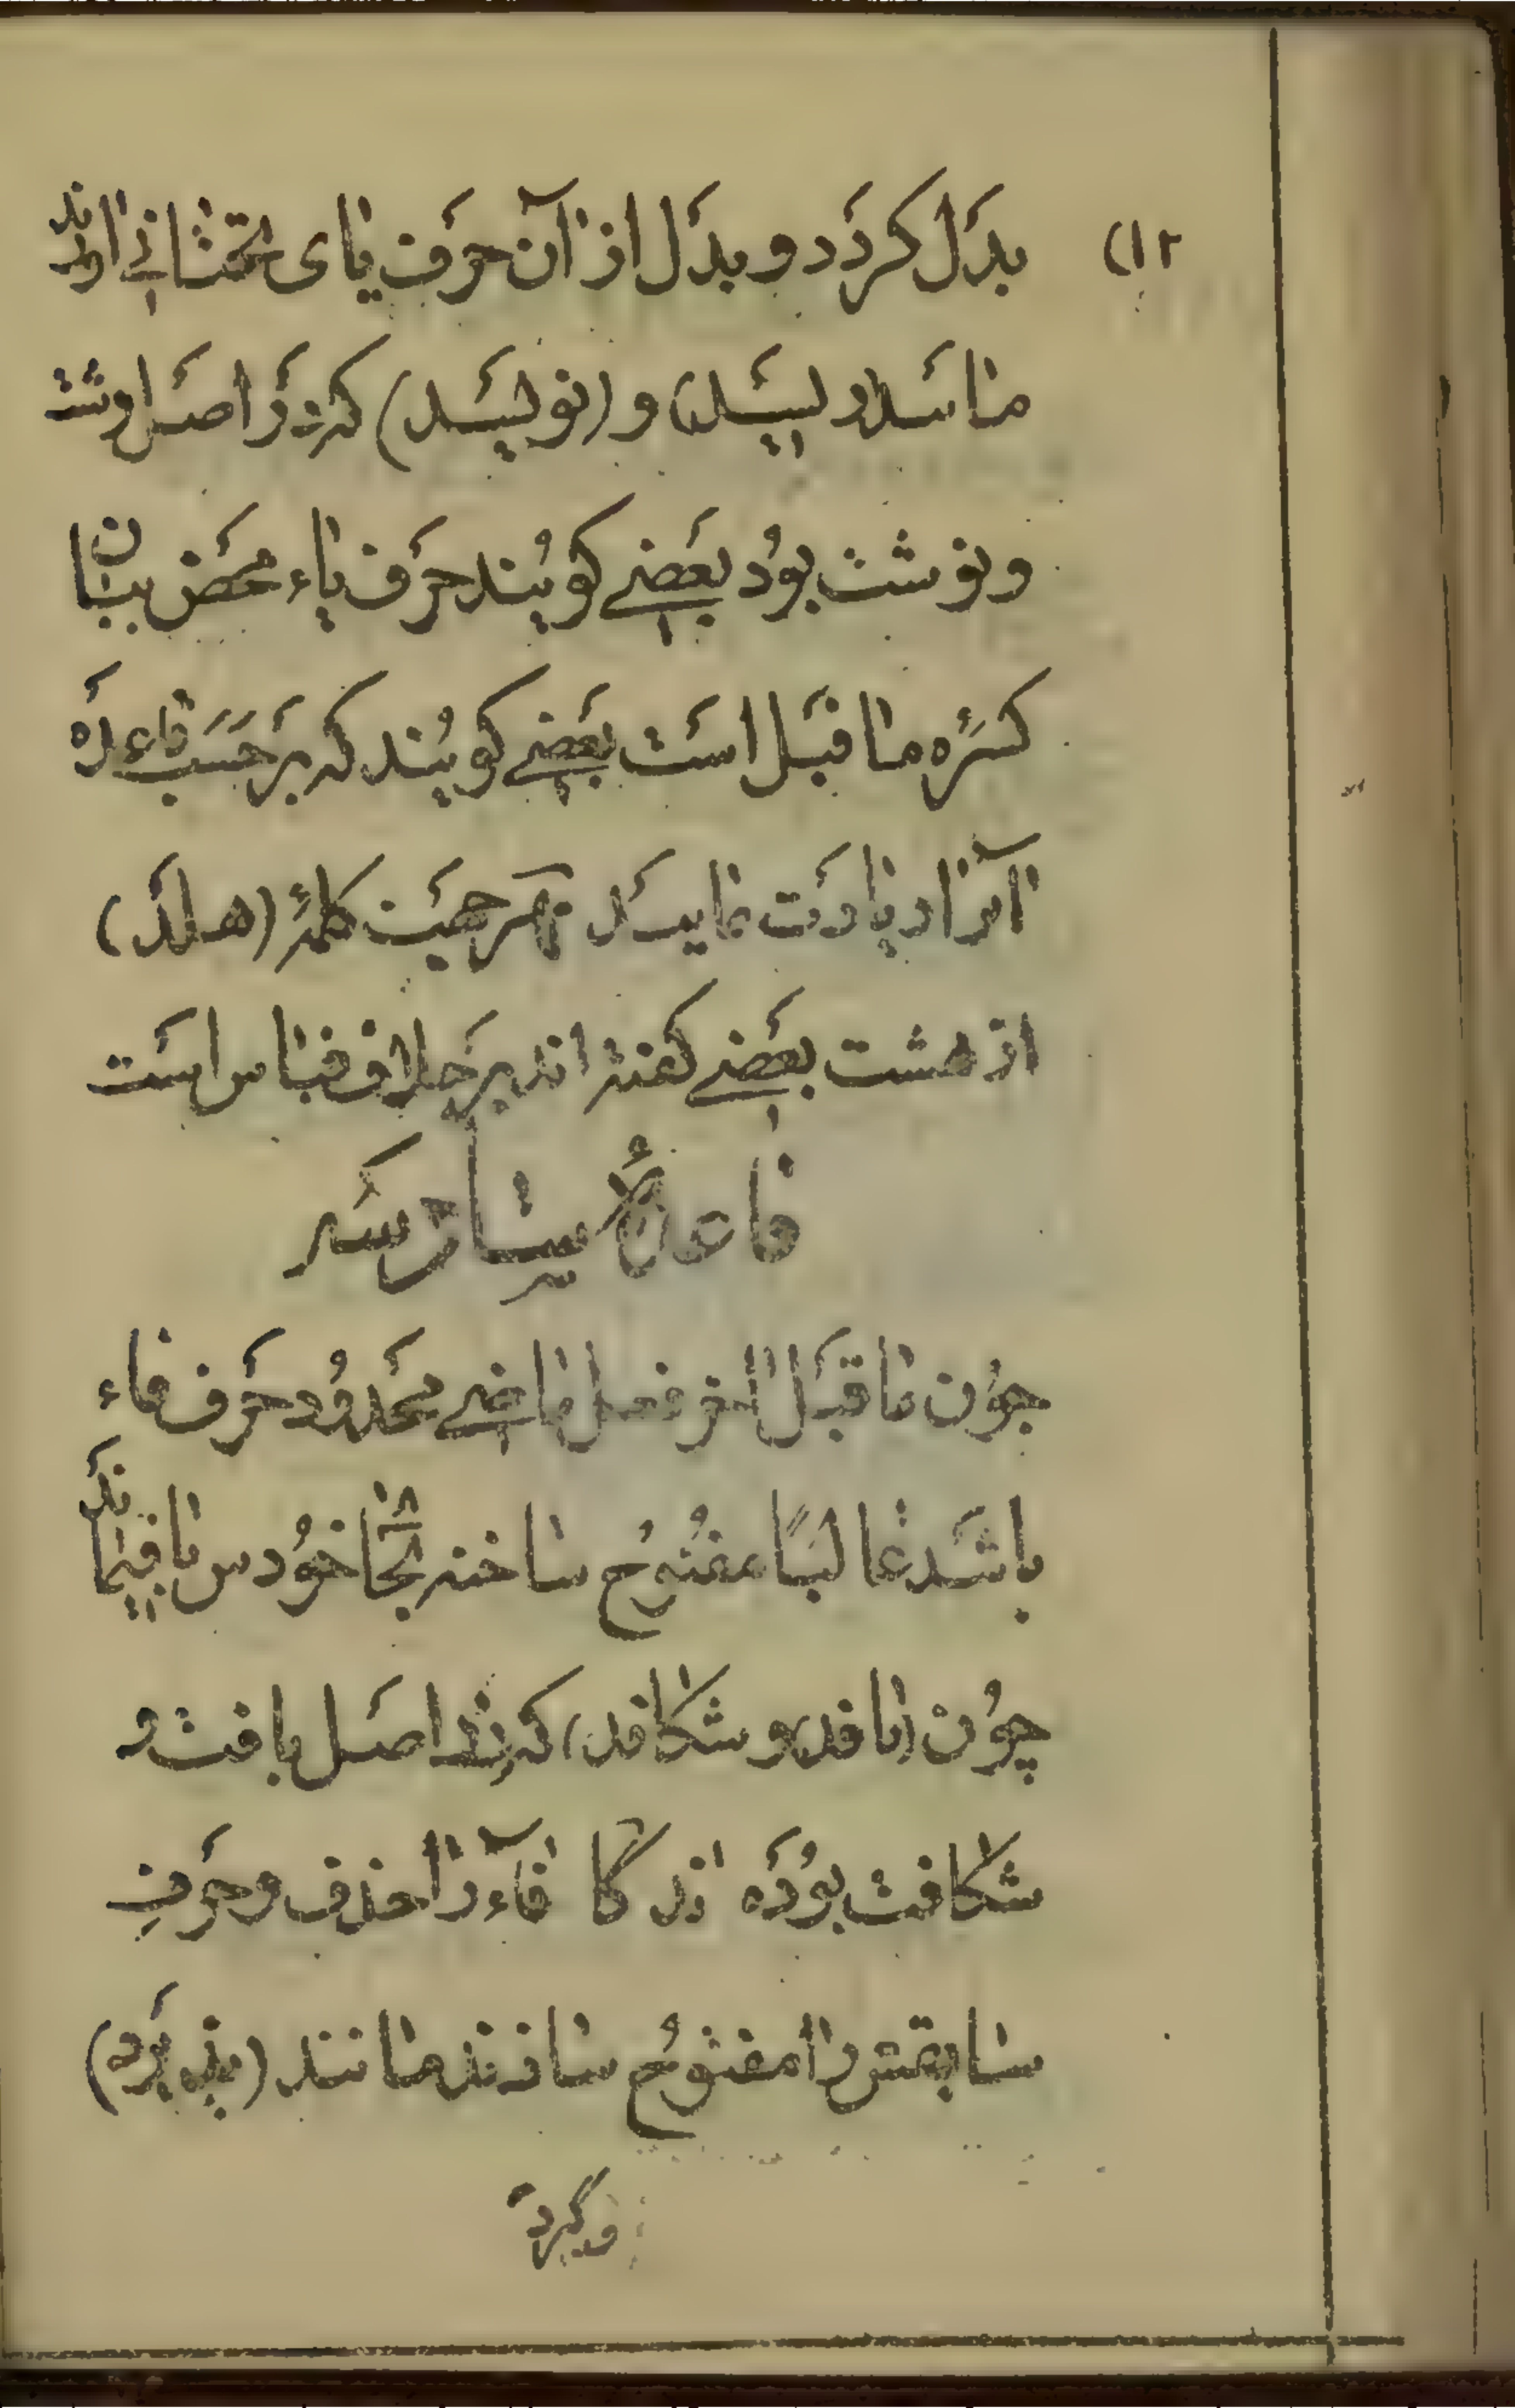 ۱۲)
بدَل کردَد و بدَل از آن حرَف یای تحتانی اورند
مانند (ریسَد) و (نویسَد) که در اصَل رشت
و نوشت بوُد بعَضے کویُند حرَف یاء محَض بیان
کسَرهٔ ما قبَل است بعَضے کویُند که برَحسَب قاعدَه
آنرا دیادَت نمایند کلمهٔ (هلَد)
از هشت بعَضے کفته اند برَخلاف قیاس است
قاعدهٔ سَه
چوُن ما قبَل اخر فعل ماضے محَدوُد حرَف فاء
باشَد غالبًا مفتوُح ساخته بجا خوُدس باقیماند
چوُن (بافد) و شکافد) که در اصَل بافت و
شکافت بوُدَه اند فاء را حذف و حرَفِ
سابقش را مفتوُح سازند مانند (پذیرَد)
وگیردَ